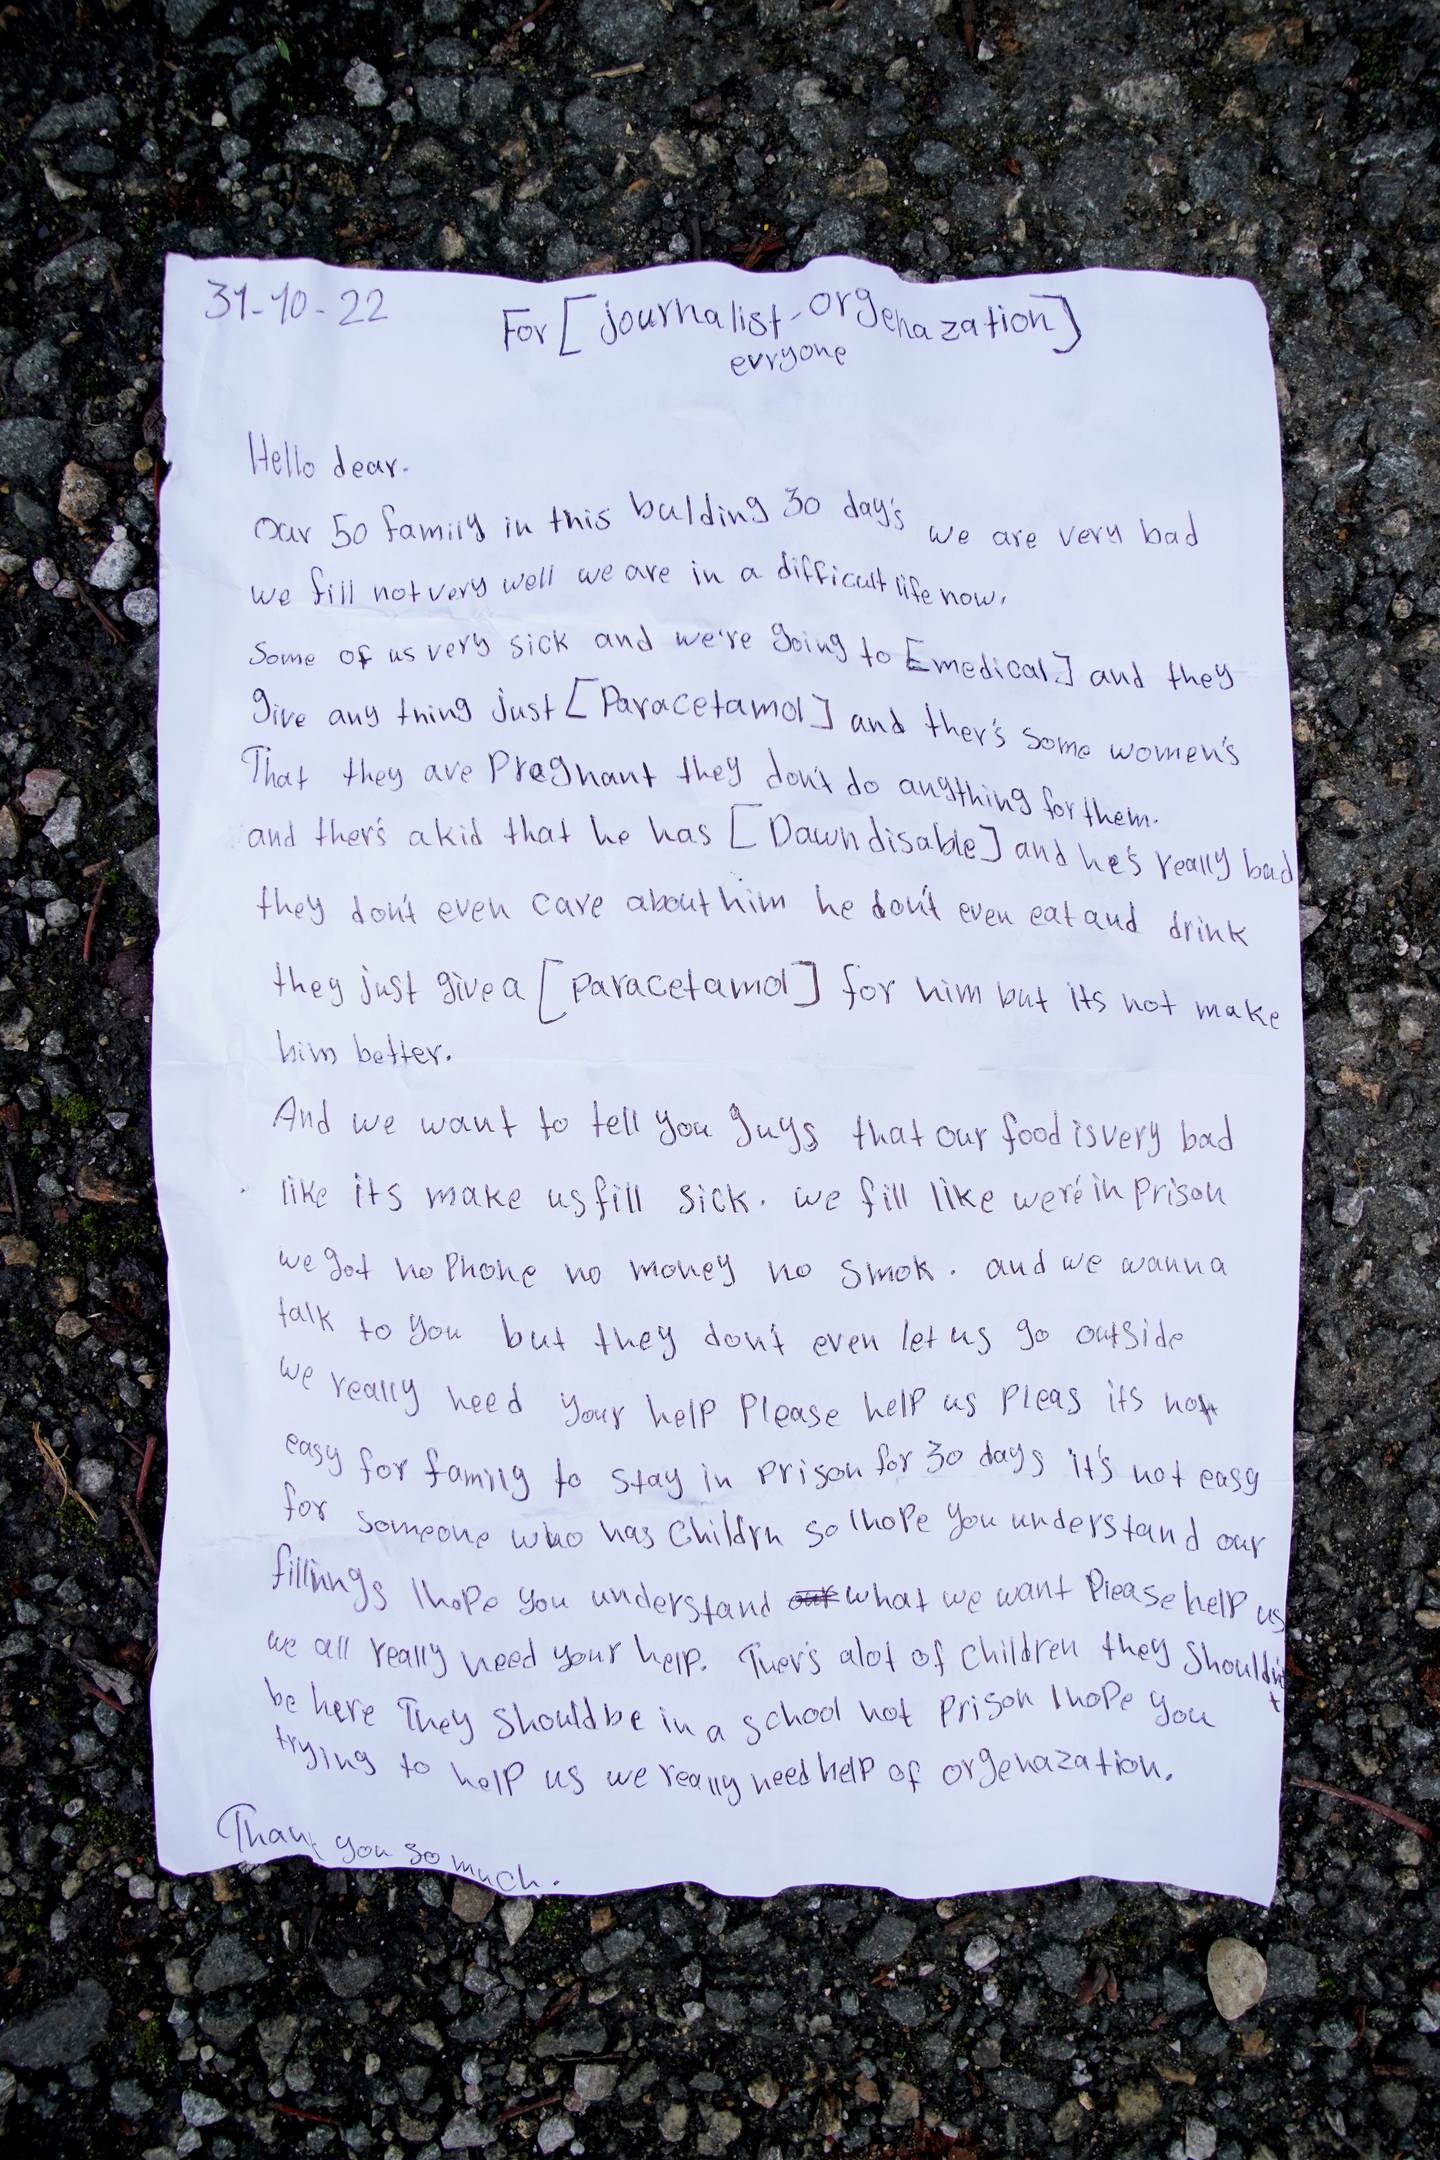 31-10-22
For [journalist-orgenazation]
evryone
Hello dear.
Our 50 family in this bulding 30 day's we are very bad
we fill not very well we are in a difficult life now.
Some of us very sick and we're going to [medical] and they
give any thing just [Paracetamol] and ther's some women's
That they are Pregnant they don't do anything for them.
and ther's a kid that he has [Dawn disable] and he's really bad
they don't even care about him he don't even eat and drink
they just give a [paracetamol] for him but its not make
him better.
And we want to tell you guys that our food is very bad
like its make us fill sick. we fill like we're in prison
we got no phone no money no smok. and we wanna
talk to you but they don't even let us go outside
we really need your help Please help us pleas its not
easy for family to stay in prison for 30 days it's not easy
for someone who has childrn so I hope you understand our
fillinngs I hope you understand our what we want Please help us
we all really need your help. Ther's alot of children they shouldn't
be here They should be in a school not prison I hope you
trying to help us we really need help of orgenazation.
Thank you so much.